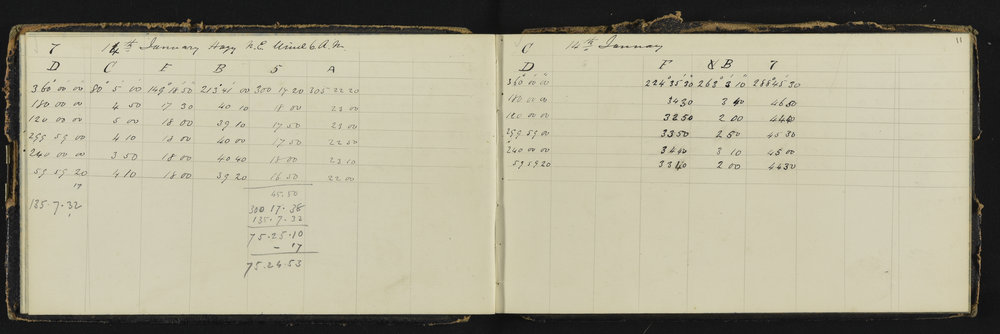 7 14th January Hazy N.E. Wind 6 A.M.
D C F B 5 A
360° 00' 00" 80° 5' 00 149° 18' 50 213° 41' 00 300 17 20 305 22 20
180 00 00 4 50 17 30 40 10 18 00 23 00
120 00 00 5 00 18 00 39 10 17 50 23 00
299 59 00 4 10 18 00 40 00 17 50 22 50
240 00 00 3 50 18 00 40 40 18 00 23 10
59 59 20 4 10 18 00 39 20 16 50 22 00
17
45.50
135.7.32
300 17.38
135.7.32
75.25.10
- 17
75.24.53
11
C 14th January
D F B 7
360° 00' 00" 224° 35' 30 263° 3' 10 288° 45' 30
180 00 00 34 30 3 40 46 50
120 00 00 32 50 2 00 44 40
299 59 00 33 50 2 50 45 30
240 00 00 34 40 3 10 45 00
59 59 20 33 40 2 00 44 30